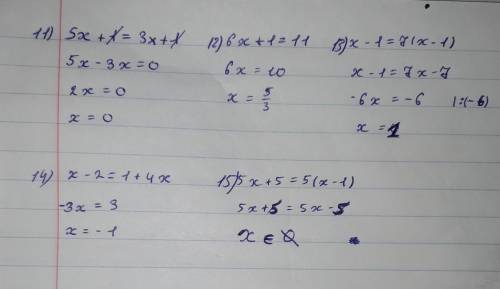 11) 5x + 1 = 3x + 1
5x - 3x = 0
2x = 0
x = 0
12) 6x + 1 = 11
6x = 10
x = 5/3
13) x - 1 = 7(x - 1)
x - 1 = 7x - 7
-6x = -6 |:(-6)
x = 1
14) x - 2 = 1 + 4x
-3x = 3
x = -1
15) 5x + 5 = 5(x - 1)
5x + 5 = 5x - 5
x ∈ ∅